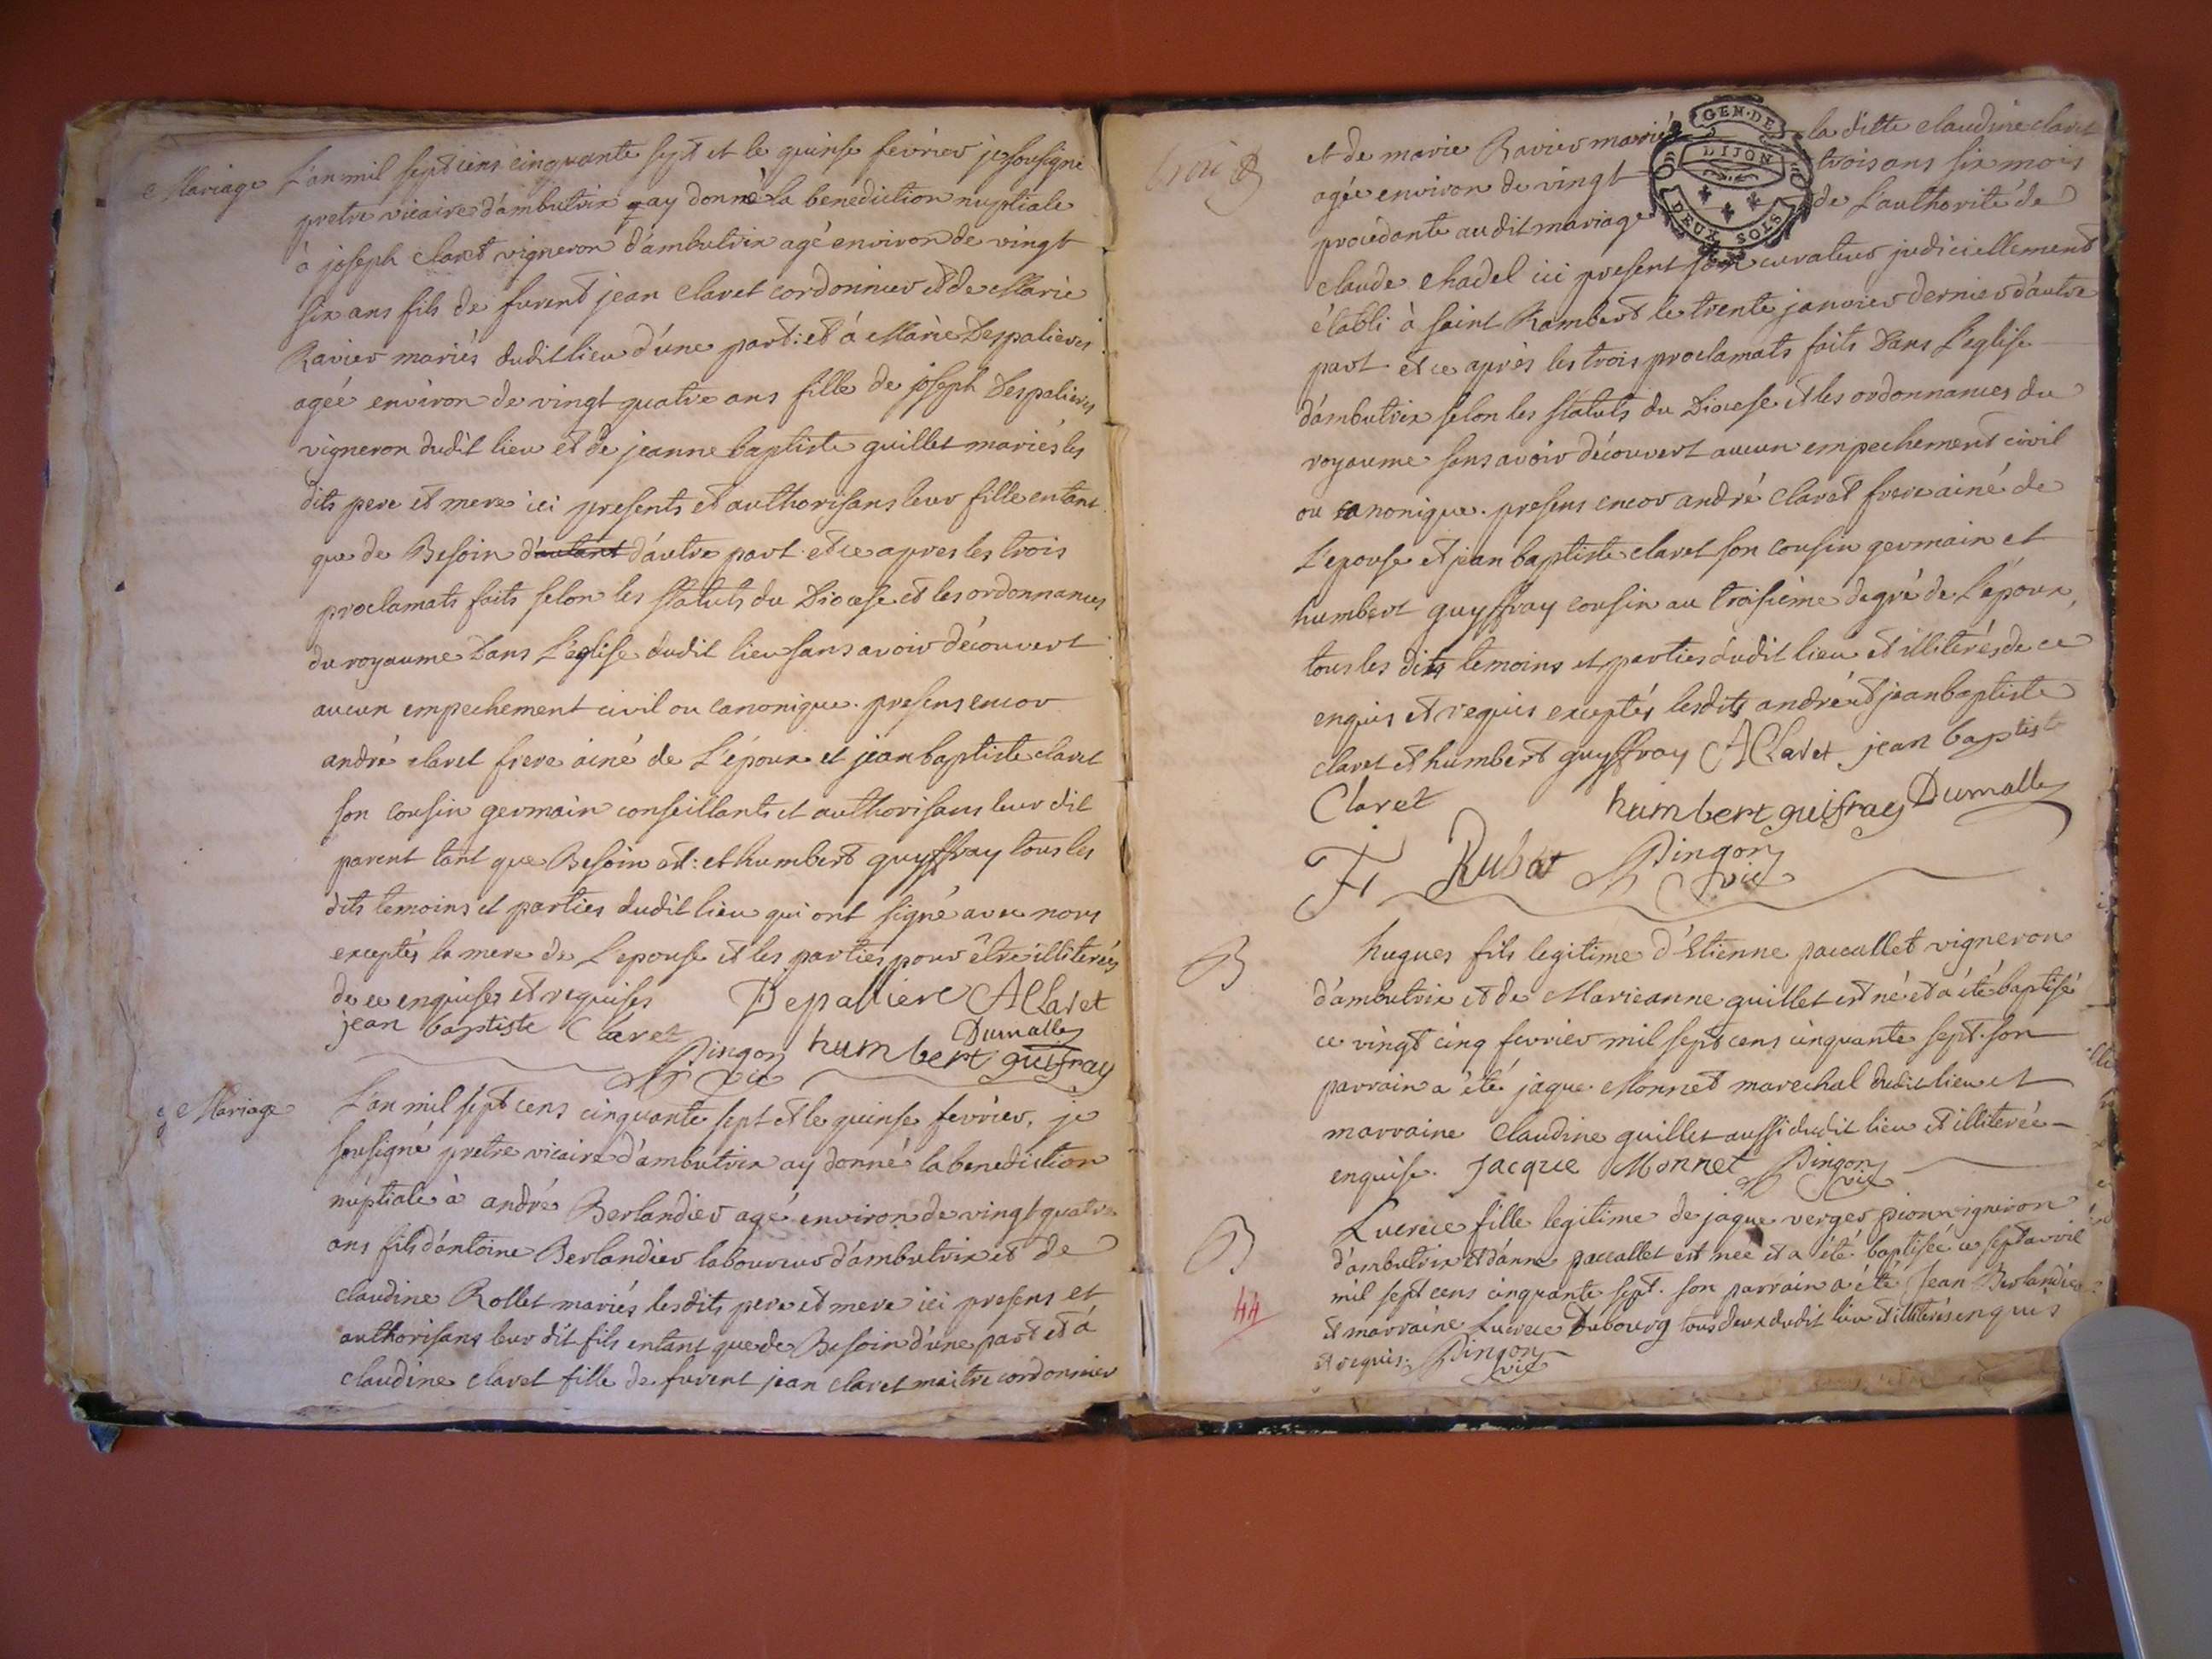 Mariage L'an mil sept cens cinquante sept et le quinse fevrier je sousigné
pretre vicaire d'ambutrix ay donné la benediction nuptiale
à joseph claret vigneron d'ambutrix agé environ de vingt
six ans fils de furent jean claret cordonnier et de Marie
Ravier mariés dudit lieu d'une part: et à Marie Despalieres
agéé environ de vingt quatre ans fille de joseph Despalieres
vigneron dudit lieu et de jeanne baptiste guillet mariés les
dits pere et mere ici presents et authorisans leur fille entant
que de Besoin d'autant d'autre part. et ce apres les trois
proclamats faits selon les statuts du Diocese et les ordonnances
du royaume Dans L'eglise dudit lieu sans avoir découvert
aucun empechement civil ou canonique. presens encor
andré claret frere ainé de L'époux et jean baptiste claret
son cousin germain conseillants et authorisans leur dit
parent tant que Besoin est: et humbert guyffray tous les
dits temoins et parties dudit lieu qui ont signé avec nous
exceptés la mere de L'epouse et les parties pour être illiterées
de ce enquises et requises Depaliere AClaret
jean baptiste Claret Dumalle
Pingon vic humbert guifray
Mariage L'an mil sept cens cinquante sept et le quinse fevrier, je
sousigné pretre vicaire d'ambutrix ay donné la benediction
nuptiale à andré Berlandier agé environ de vingt quatre
ans fils d'antoine Berlandier laboureur d'ambutrix et de
claudine Rollet mariés lesdits pere et mere ici presens et
authorisans leur dit fils entant que de Besoin d'une part et à
claudine claret fille de furent jean claret maitre cordonnier
et de marie Ravier mariés GEN·DE la ditte claudine claret
agée environ de vingt DIJON trois ans six mois
procédante audit mariage DEUX SOLS de L'authorité de
claude chadel ici present son curateur judiciellement
établi à saint Rambert le trente janvier dernier d'autre
part et ce après les trois proclamats faits Dans L'eglise
d'ambutrix selon les statuts du Diocese et les ordonnances du
royaume sans avoir découvert aucun empechement civil
ou canonique. presens encor andré claret frere ainé de
L'epouse et jean baptiste claret son cousin germain et
humbert guyffray cousin au troisième degré de L'époux,
tous les dits temoins et parties dudit lieu et illiterés de ce
enquis et requis exceptés lesdits andré et jean baptiste
claret et humbert guyffray AClaret jean baptiste
Claret humbert guifray Dumalle
F Rubat Pingon vic
B hugues fils legitime d'Etienne paccallet vigneron
d'ambutrix et de Marieanne guillet est né et a été baptisé
ce vingt cinq fevrier mil sept cens cinquante sept. son
parrain a été jaque Monnet marechal dudit lieu et
marraine Claudine guillet aussi dudit lieu et illiterée
enquise. Jacque Monnet Pingon vic
B Lucrece fille legitime de jaque verger pion vigneron
d'ambutrix et d'anne paccallet est née et a été baptisée ce sept avril
mil sept cens cinquante sept. son parrain a été Jean Berlandier
44 et marraine Lucrece Dubourg tous deux dudit lieu et illiterés enquis
et requis. Pingon vic